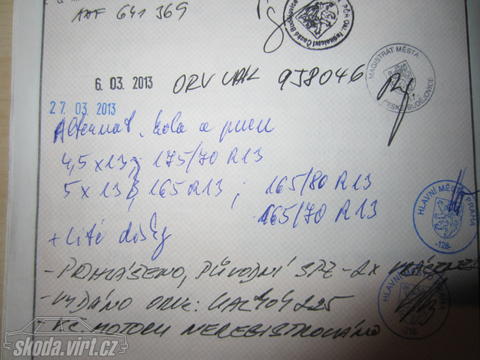 AAF 641 369
6. 03. 2013 ORV UAK 958046
MAGISTRÁT MĚSTA
ČESKÉ BUDĚJOVICE
27 03. 2013
Alternat. kola a pneu
4,5 x 13 ; 175/70 R13
5 x 13 ; 165 R13 ; 165/80 R13
165/70 R13
+ lité disky
HLAVNÍ MĚSTO PRAHA
-128-
- PŘIHLÁŠENO, PŮVODNÍ SPZ - 2x VRÁCENE
- VYDÁNO ORV: UAL 404225
KČ MOTORU NEREGISTROVÁNO
škoda.virt.cz